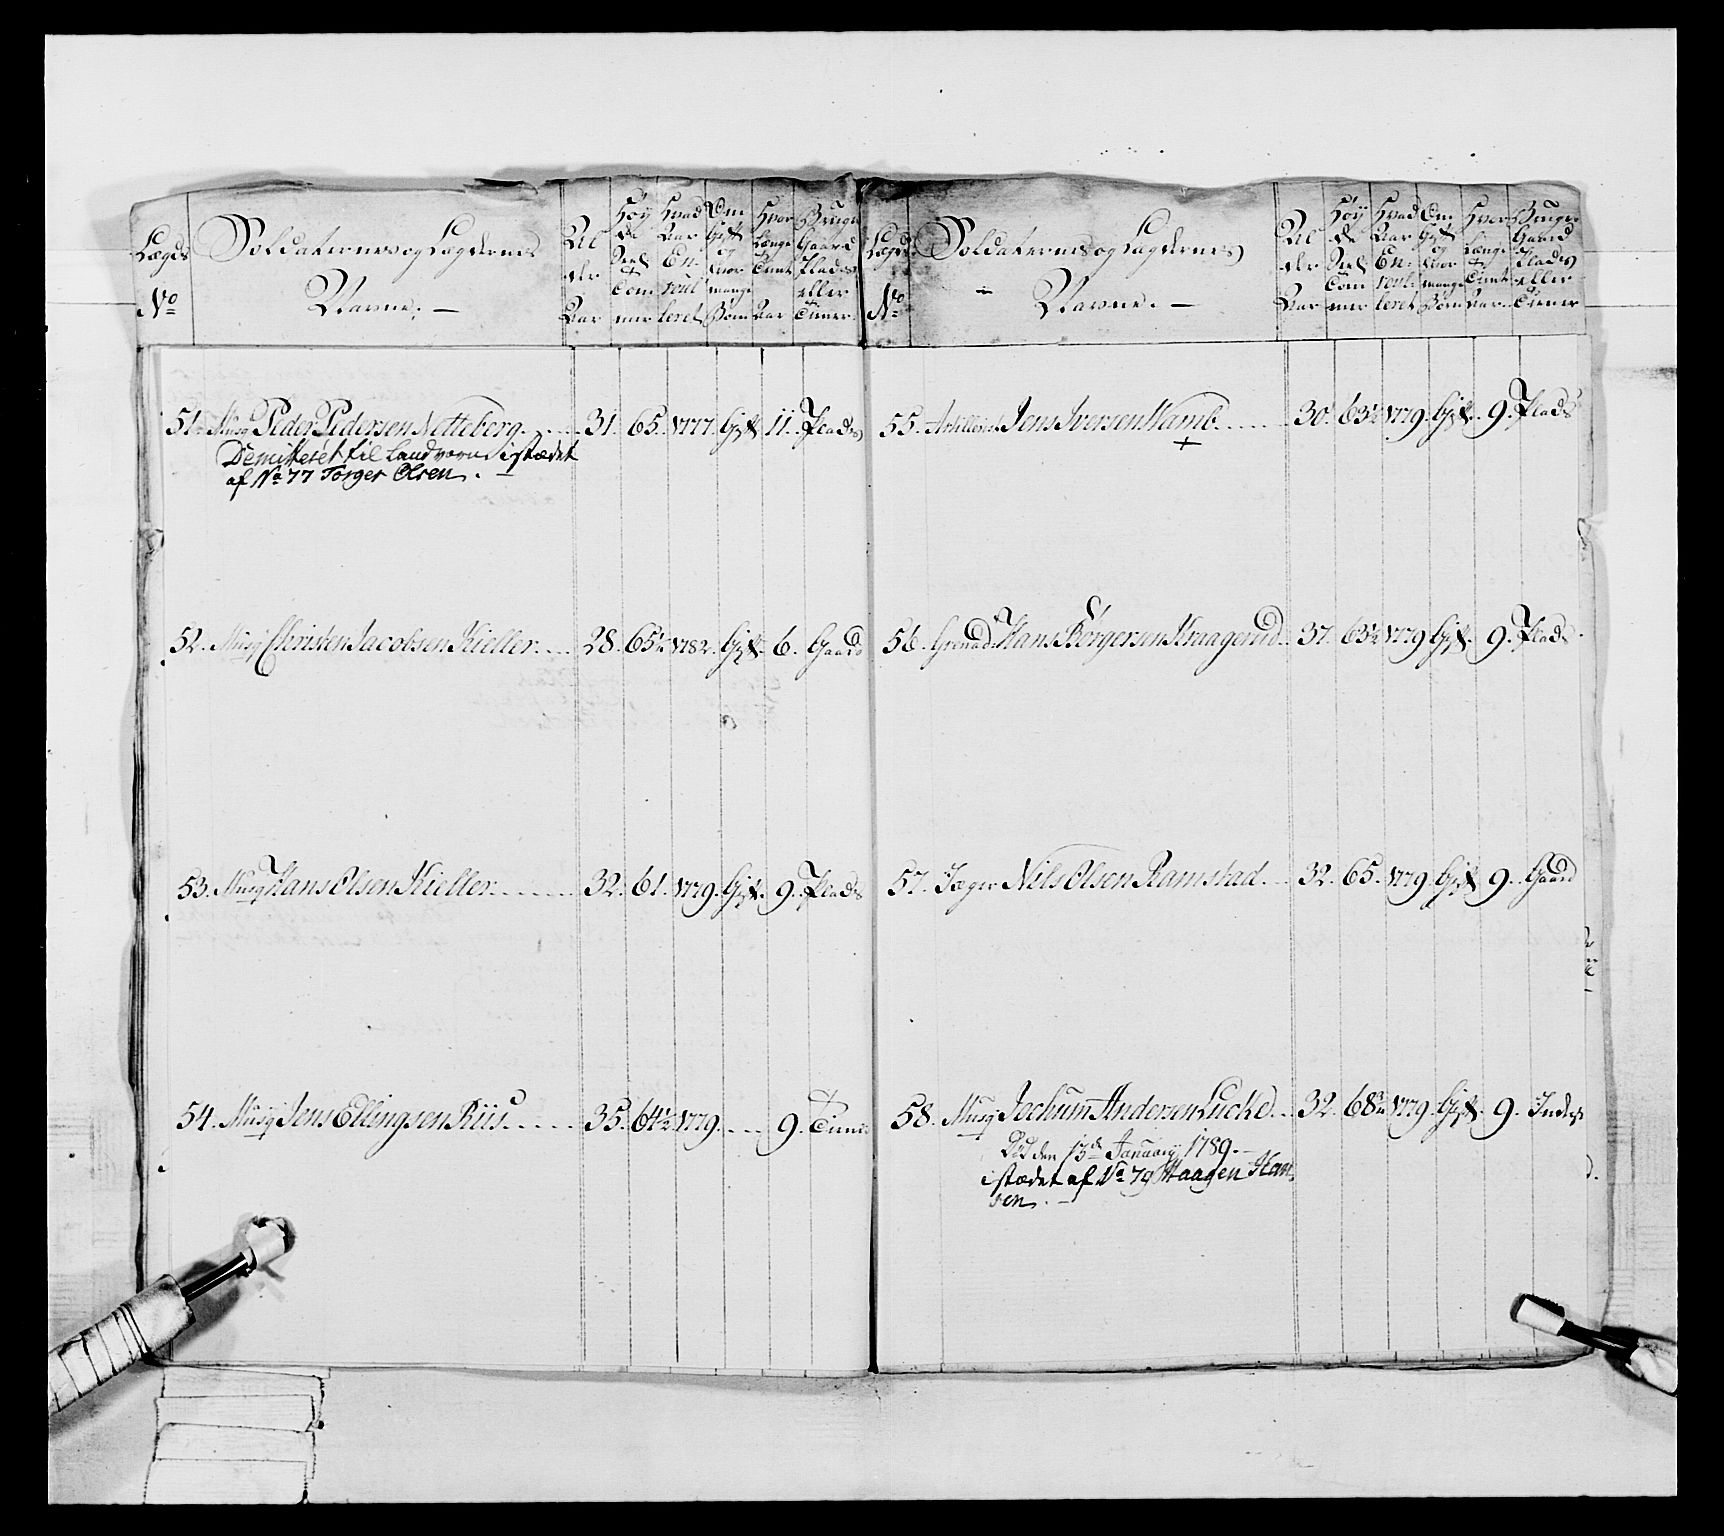 Lægds No
Soldaternes og Lægdernes Navne.
Alder Aar
Høyde Sield Tommer
Hvad Aar Enroulleret
Om Gift og hvor mange Børn
Hvor Længe Tient Aar
Bruger Gaard Plads eller Tiener
51. Musq Peder Pedersen Netteberg. 31. 65. 1777. Gift. 11. Plads
Demitteret til Landværn istædet
af No 77 Torger Olsen.
52. Musq Christen Jacobsen Kieller. 28. 65½. 1782. Gift. 6. Gaard
53. Musq Hans Olsen Kieller. 32. 61. 1779. Gift. 9. Plads
54. Musq Jens Ellingsen Riis. 35. 64½. 1779. 9. Tiener
Lægds No
Soldaternes og Lægdernes Navne.
Alder Aar
Høyde Sield Tommer
Hvad Aar Enroulleret
Om Gift og hvor mange Børn
Hvor Længe Tient Aar
Bruger Gaard Plads eller Tiener
55. Artillerist Jens Iversen Wamb. 30. 63½. 1779. Gift. 9. Plads
56. Grenad. Hans Børgersen Kraagerud. 37. 63½. 1779. Gift. 9. Plads.
57. Jæger Nils Olsen Ramstad. 32. 65. 1779. Gift. 9. Gaard
58. Musq Jochum Andersen Lucke. 32. 68¾. 1779. Gift. 9. Inders
Død den 13de January 1789.
istædet af No 79 Haagen Han
sen.